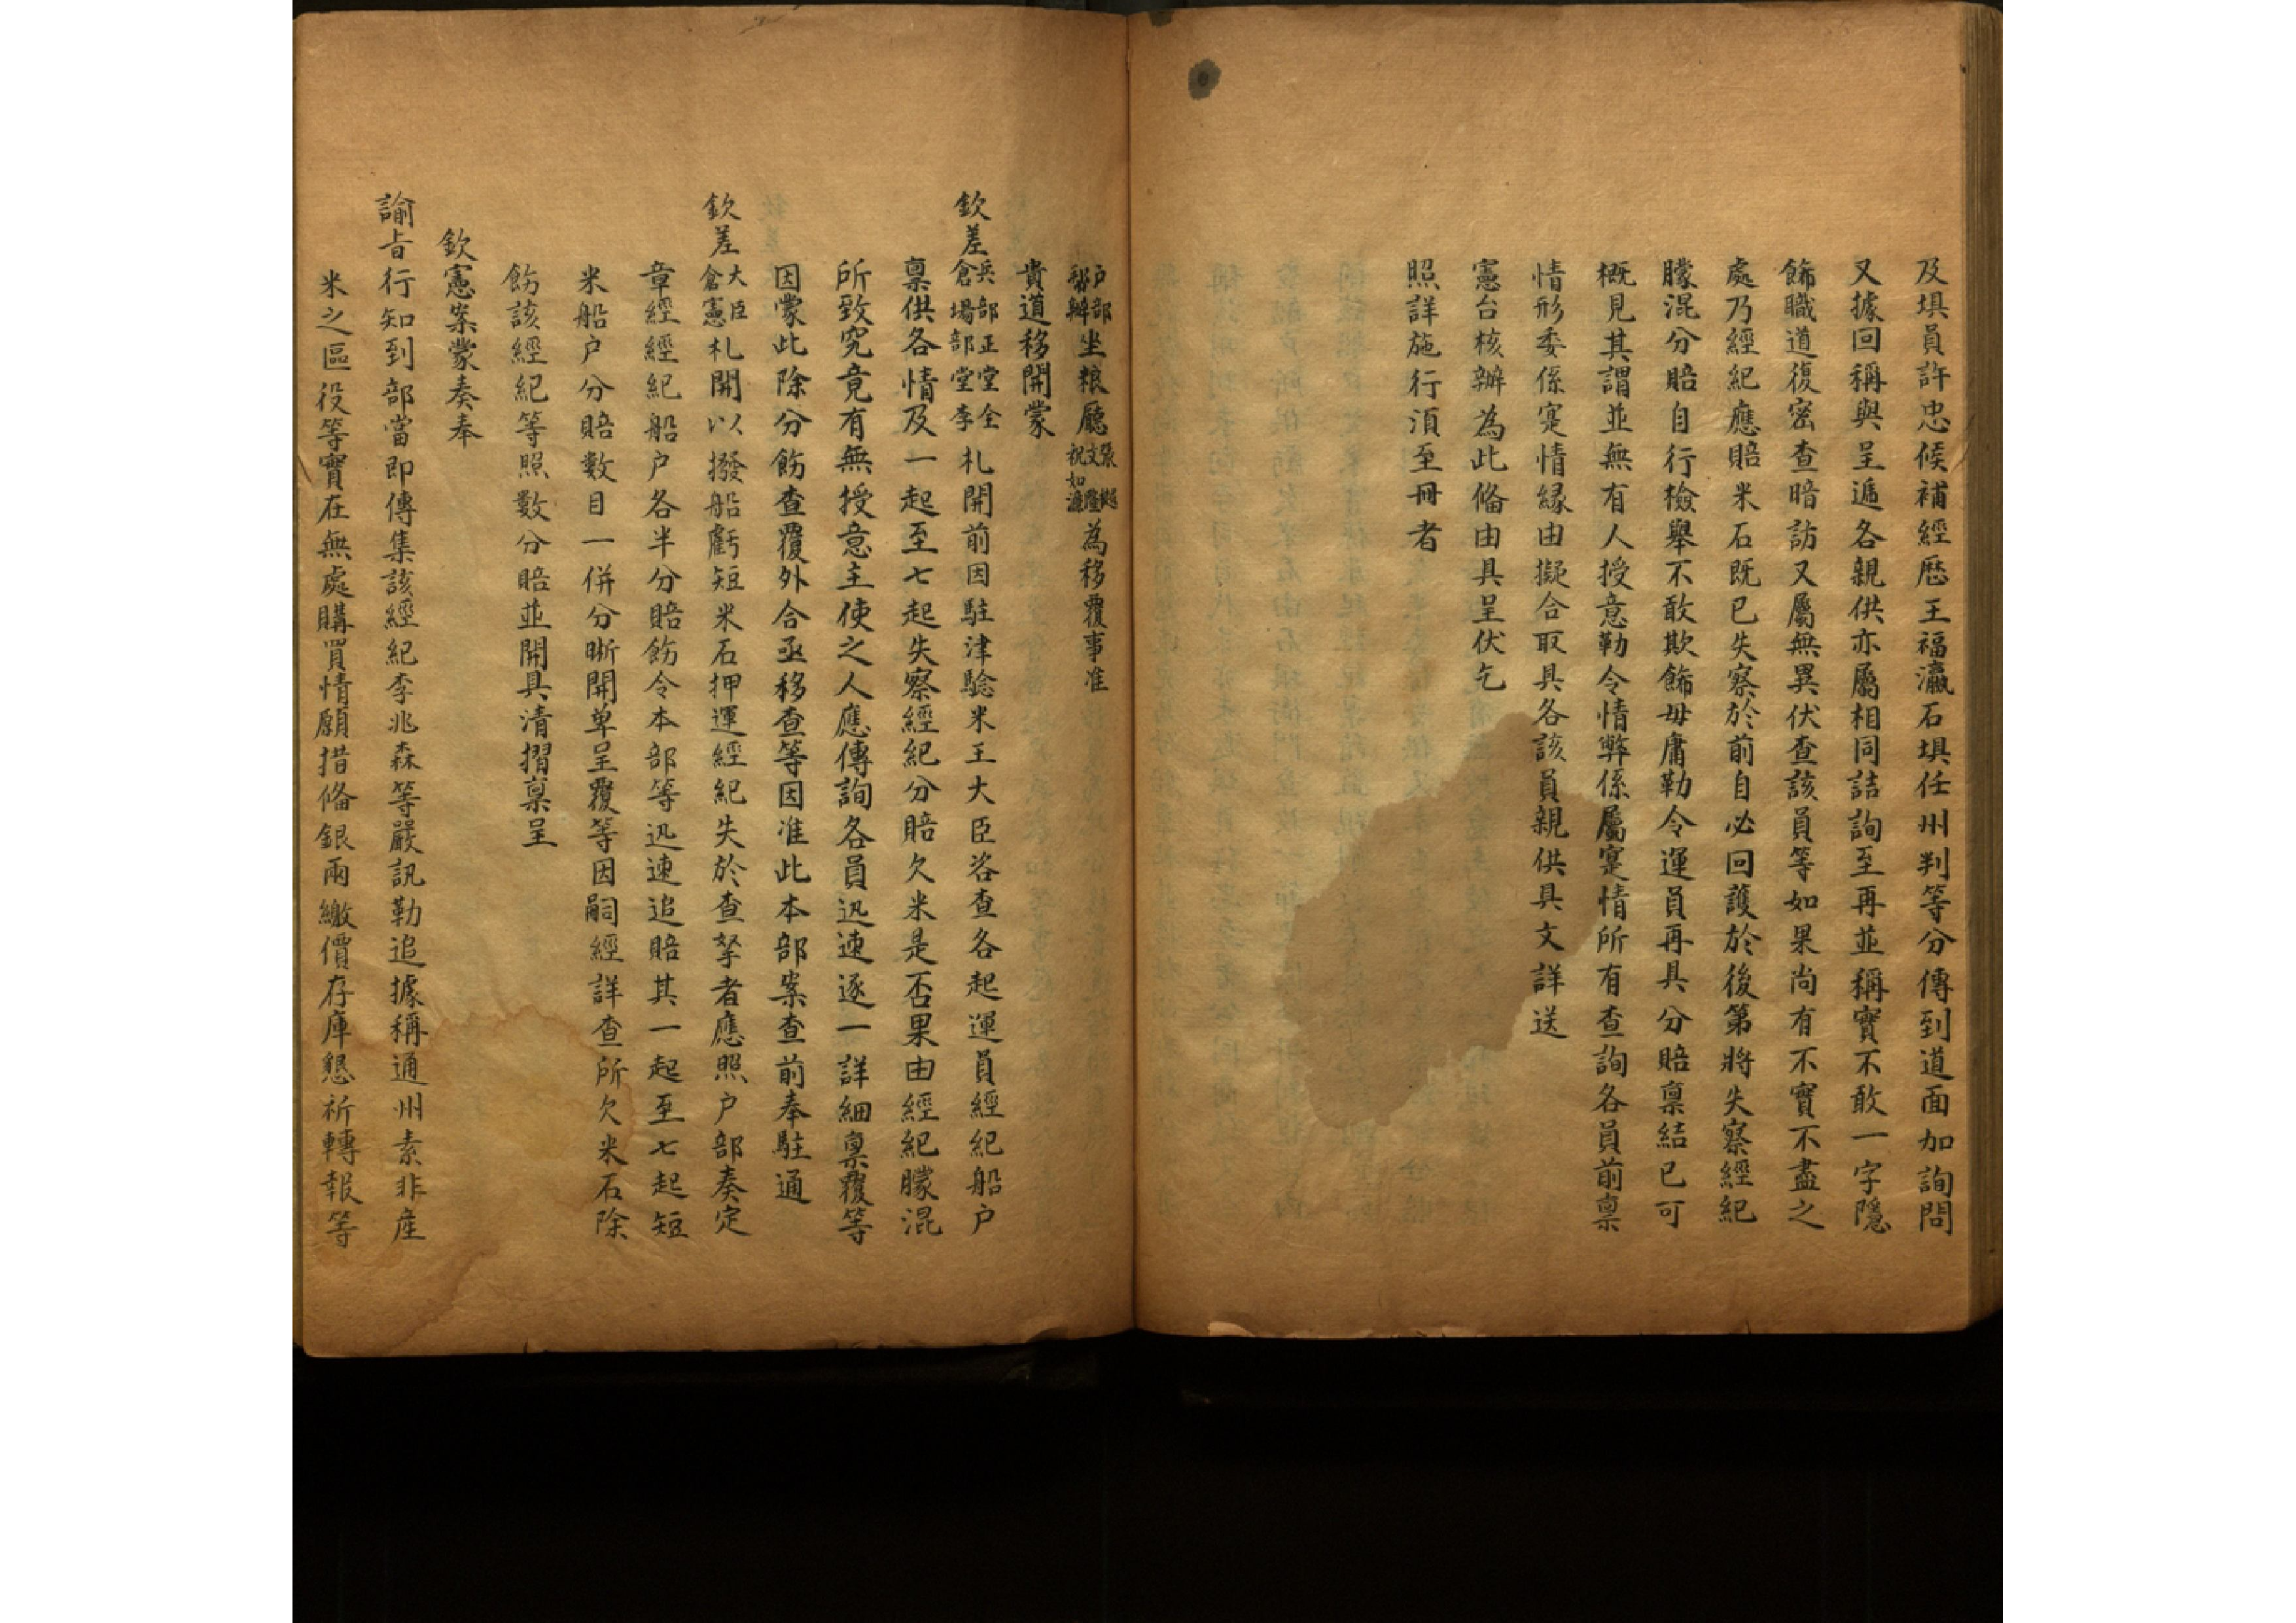 及填員許忠候補經歷王福瀛石填任州判等分傳到道面加詢問
又據回稱與呈遞各親供亦屬相同詰詢至再並稱實不敢一字隱
餙職道復密查暗訪又屬無異伏查該員等如果尚有不實不盡之
處乃經紀應賠米石既已失察於前自必回護於後第將失察經紀
朦混分賠自行檢舉不敢欺餙毋庸勒令運員再具分賠稟結已可
概見其謂並無有人授意勒令情弊係屬寔情所有查詢各員前稟
情形委係寔情緣由擬合取具各該員親供具文詳送
憲台核辦為此俻由具呈伏乞
照詳施行湏至冊者
戶部坐粮廳為移覆事准
貴道移開蒙
欽差兵部正堂全倉場部堂李札開前因駐津驗米王大臣咨查各起運員經紀船户
稟供各情及一起至七起失察經紀分賠欠米是否果由經紀朦混
所致究竟有無授意主使之人應傳詢各員迅速逐一詳細稟覆等
因蒙此除分飭查覆外合亟移查等因准此本部案查前奉駐通
欽差大臣倉憲札開以撥船虧短米石押運經紀失於查拏者應照户部奏定
章經經紀船户各半分賠飭令本部等迅速追賠其一起至七起短
米船户分賠數目一併分晰開单呈覆等因嗣經詳查所欠米石除
飭該經紀等照數分賠並開具清摺稟呈
欽憲案蒙奏奉
諭旨行知到部當即傳集該經紀李兆森等嚴訊勒追據稱通州素非產
米之區役等實在無處購買情願措俻銀兩繳價存庫懇祈轉報等